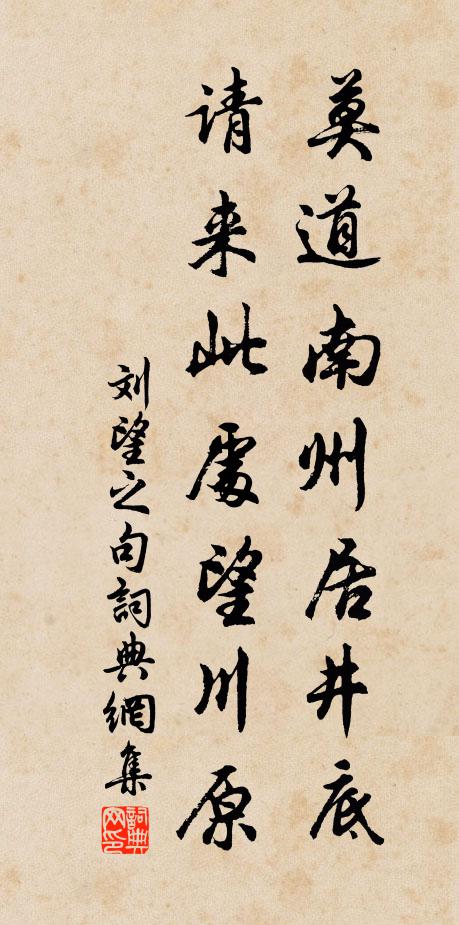 莫道南州居井底
请来此处望川原
刘望之句詞典網集
詞典网印